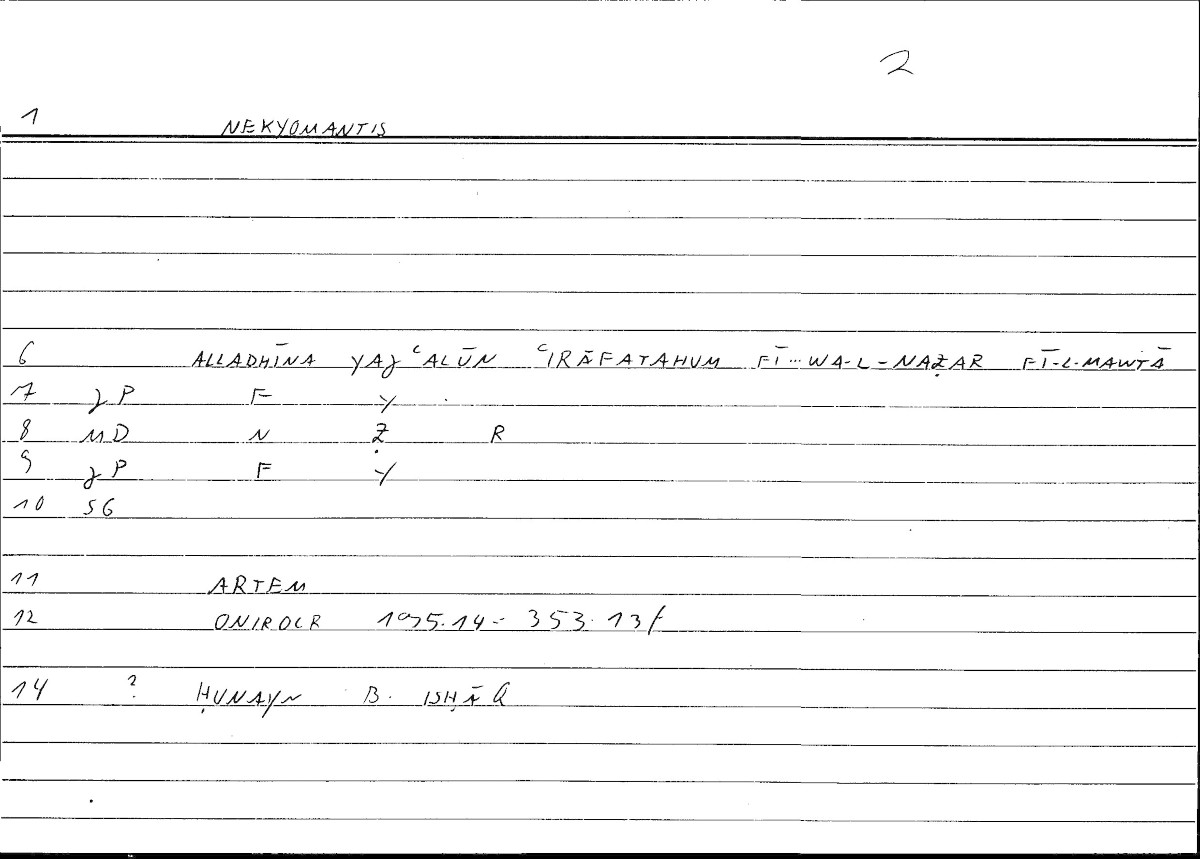 2
1 NEKYOMANTIS
6 ALLADHĪNA YAJʿALŪN ʿIRĀFATAHUM FĪ...WA-L-NAẒAR FĪ-L-MAWTĀ
7 JP F Y
8 MD N Ẓ R
9 JP F Y
10 SG
11 ARTEM
12 ONIROCR 175.14- 353.13f
14 ? ḤUNAYN B. ISḤĀQ